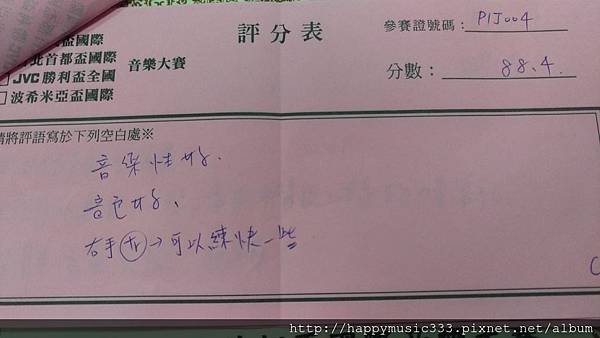 評分表
參賽證號碼： PIJ004
分數： 88.4.
盃國際
北首都盃國際
音樂大賽
□JVC勝利盃全國
□波希米亞盃國際
請將評語寫於下列空白處※
音樂性好、
音色好、
右手 tr → 可以練快一些
http://happymusic333.pixnet.net/album